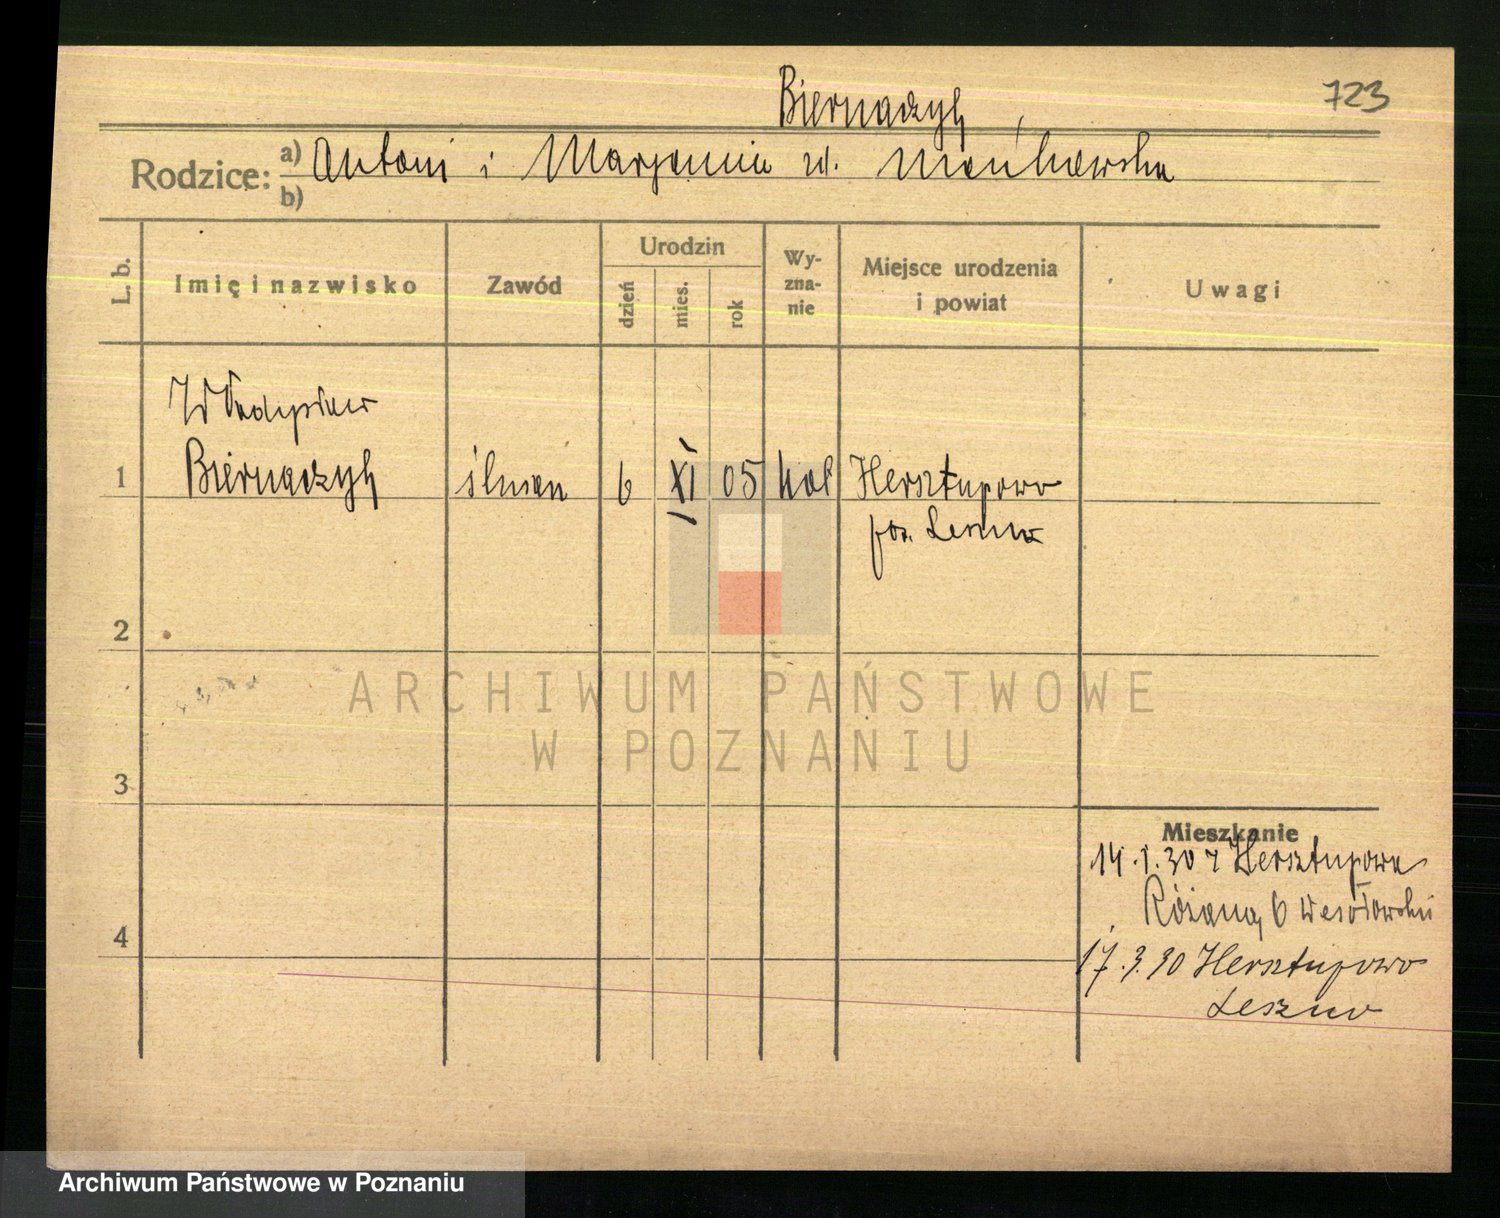 723
Biernaczyk
Rodzice: a) Antoni i Marjanna zd. Mańkowska
b)
L. b.
Imię i nazwisko
Zawód
Urodzin
dzień
mies.
rok
Wy-
zna-
nie
Miejsce urodzenia
i powiat
Uwagi
Władysław
1 Biernaczyk 6 XI 05 kat Hersztupowo
pow. Leszno
2
3
4
Mieszkanie
14.1.30 z Hersztupowa
Różana 6 Wesołowski
17.3.30 Hersztupowo
Leszno
ARCHIWUM PAŃSTWOWE
W POZNANIU
Archiwum Państwowe w Poznaniu